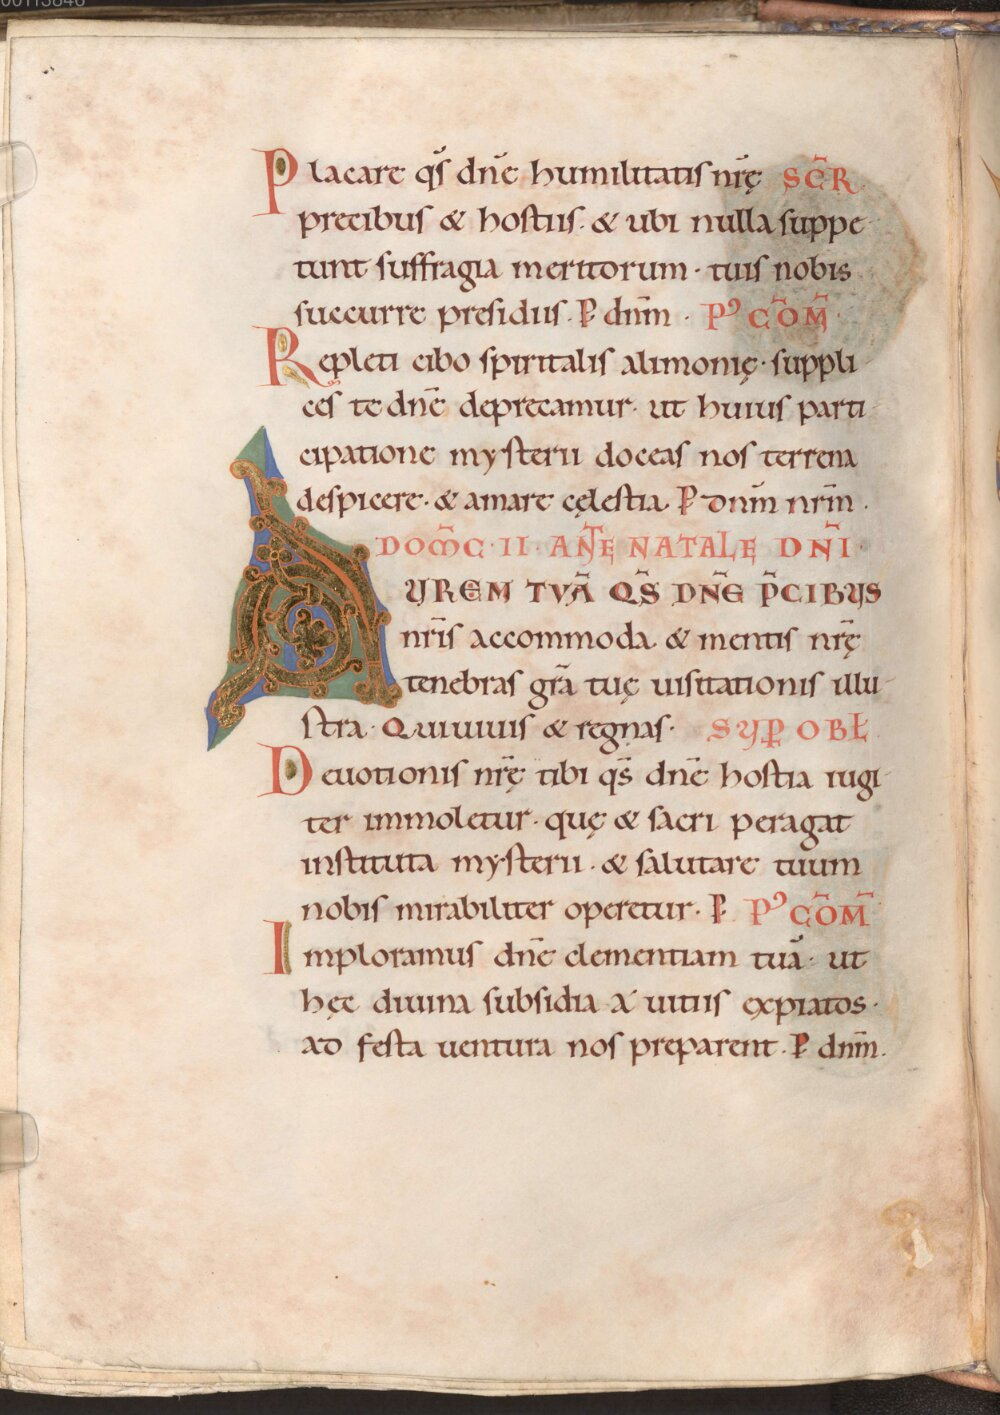 Placare qs̄ dn̄e humilitatis nr̄ę SCR̄
precibus & hostiis · & ubi nulla suppe
tunt suffragia meritorum · tuis nobis
succurre presidiis · P dnm̄ · PꝰCOM̄
Repleti cibo spiritalis alimonię · suppli
ces te dn̄e deprecamur · ut huius parti
cipatione mysterii doceas nos terrena
despicere · & amare cęlestia · P dnm̄ nrm̄ ·
DOM̄C · II · ANT̄E NATALE DN̄I
AUREM TUĀ QS̄ DN̄E P̄CIBUS
nr̄is accommoda · & mentis nr̄ę
tenebras gr̄a tuę uisitationis illu
stra · Qui uiuis & regnas · SUP OBŁ
Deuotionis nr̄ę tibi qs̄ dn̄e hostia iugi
ter immoletur · quę & sacri peragat
instituta mysterii · & salutare tuum
nobis mirabiliter operetur · P PꝰCOM̄
Imploramus dn̄e clementiam tuā · ut
hęc diuina subsidia a uitiis expiatos ·
ad festa uentura nos preparent · P dnm̄ ·